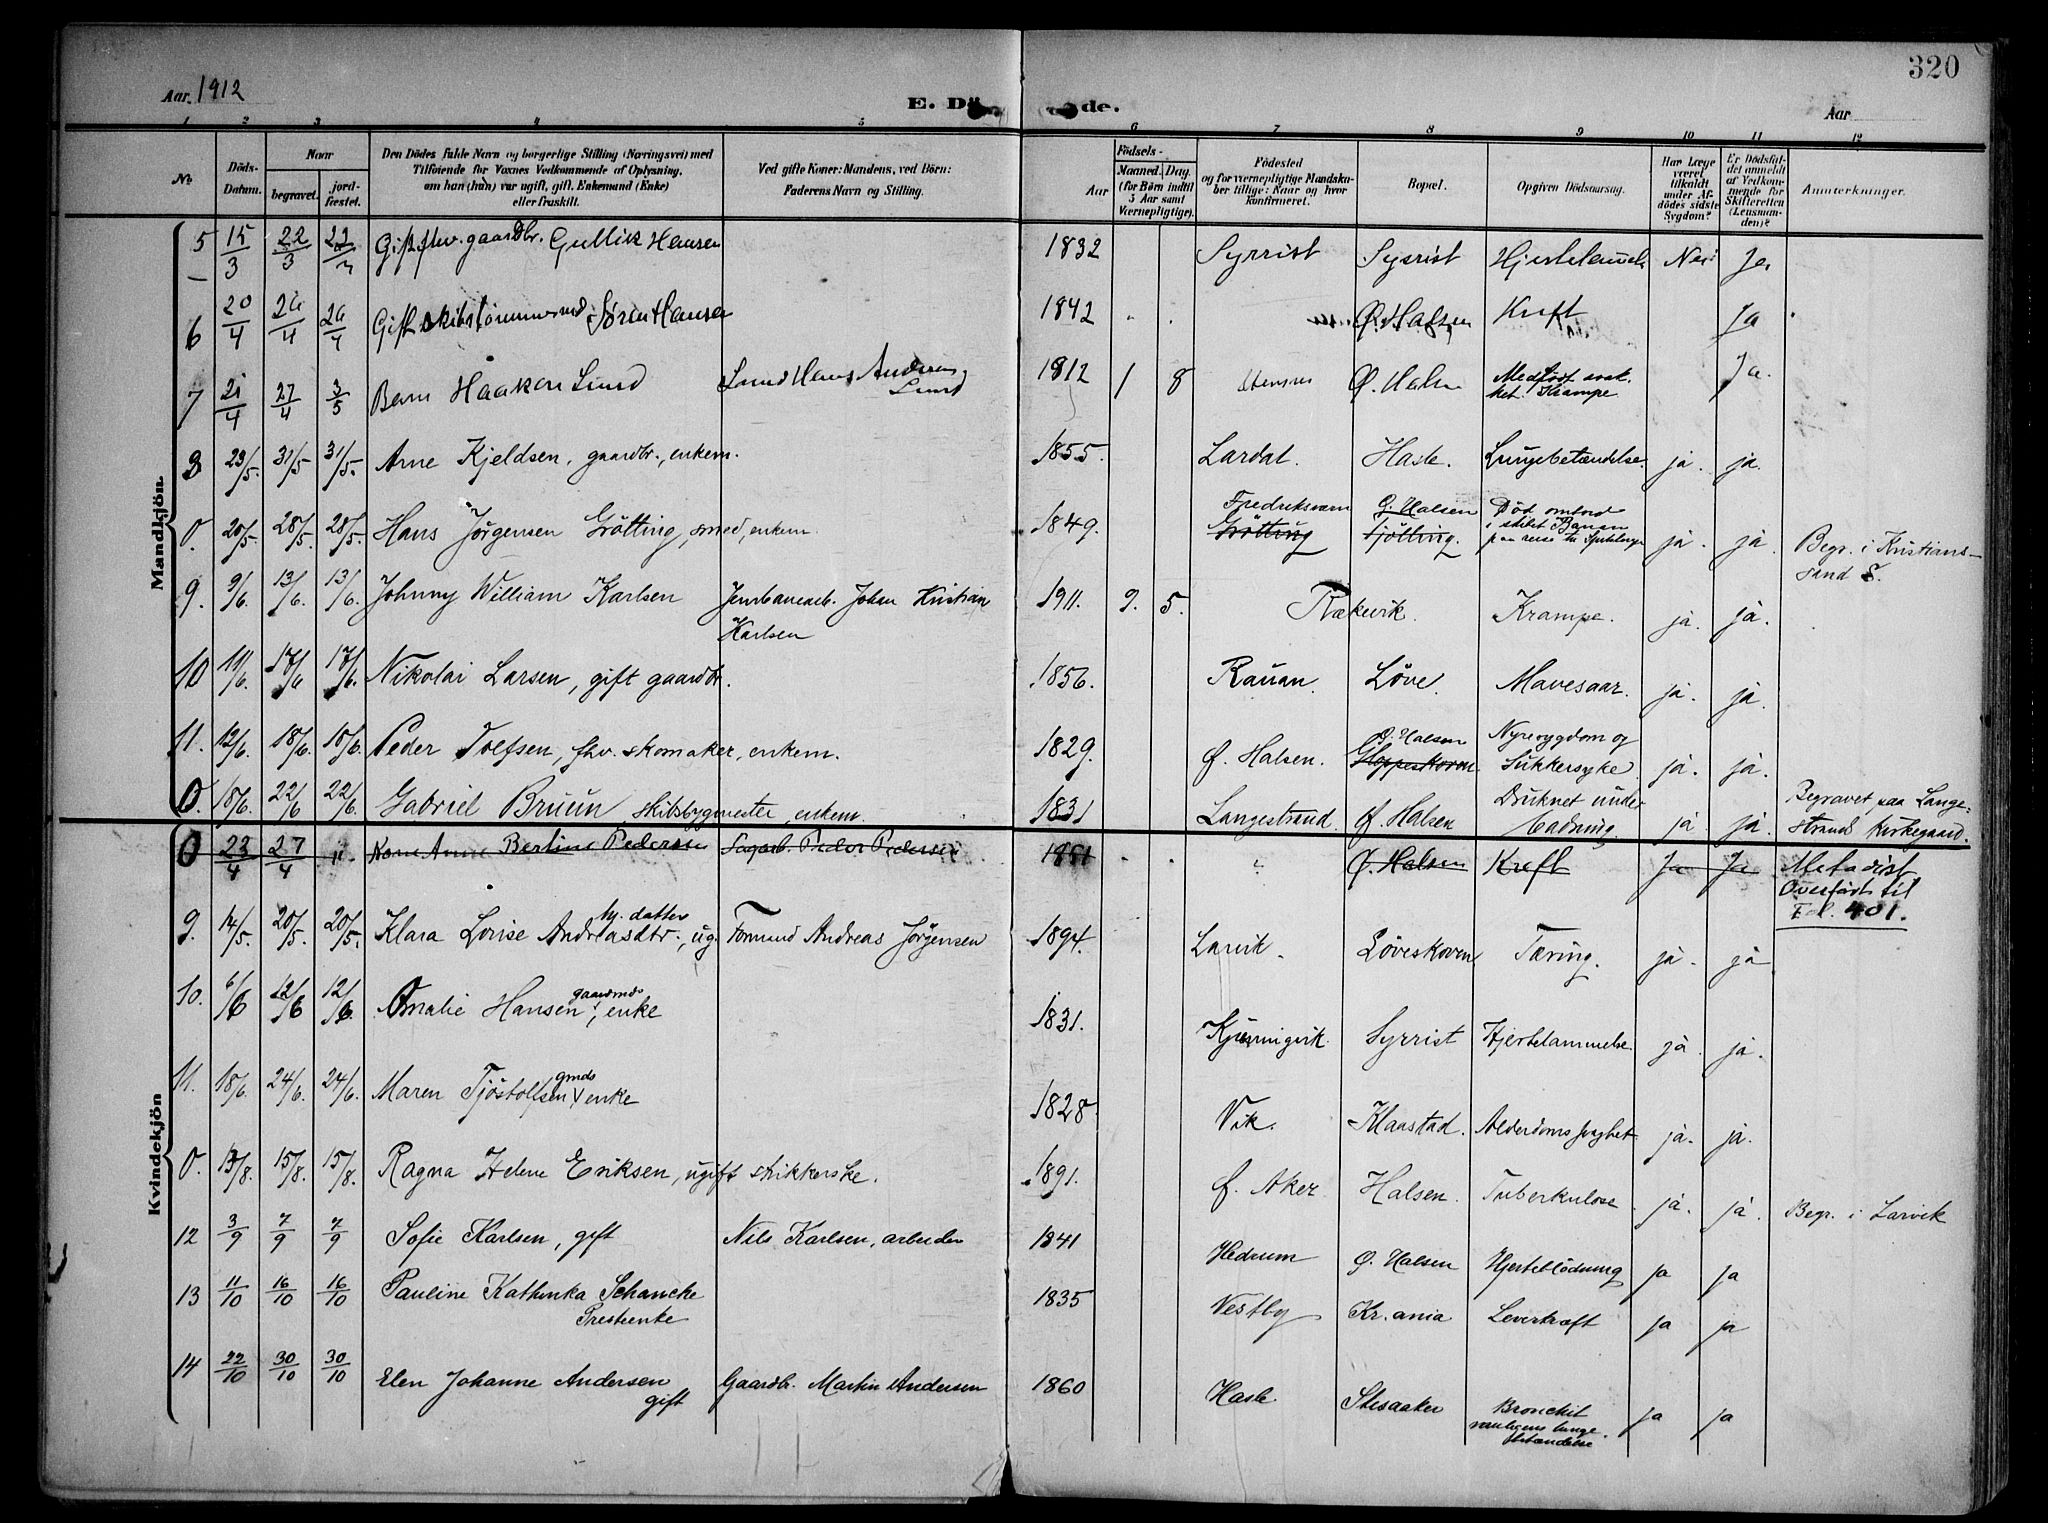 320
Aar 1912
E. Dö de.
Aar
1 2 3 4 5 6 7 8 9 10 11 12
Nr. Döds-Datum. Naar begravet. jord-fæstet. Den Dödes fulde Navn og borgerlige Stilling (Næringsvei) med Tilföiende for Voxnes Vedkommende af Oplysning, om han (hun) var ugift, gift, Enkemand (Enke) eller fraskilt. Ved gifte Koner: Mandens, ved Börn: Faderens Navn og Stilling. Födsels- Aar Maaned. Dag. (for Börn indtil 5 Aar samt Værnepligtige). Födested og for værnepligtige Mandskaber tillige: Naar og hvor konfirmeret. Bopæl. Opgiven Dödsaarsag. Har Læge været tilkaldt under Afdödes sidste Sygdom? Er Dödsfaldet anmeldt af Vedkommende for Skifteretten (Lensmanden)? Anmærkninger.
Mandkjön.
5 15/3 22/3 Gift fhv. gaardbr. Gullik Hansen 1832 Syrrist Syrrist Nei Ja
6 20/4 26/4 26/4 Gift Skibstømmermd Søren Hansen 1842 Ø. Halsen Kreft Ja
7 21/4 27/4 3/5 Barn Haakon Lund Smed Hans Andersen
Lund 1812 1 8 Ø. Halsen Medfødt svak-
het. Krampe Ja.
8 23/5. 31/5 31/5. Arne Kjeldsen, gaardbr., enkem. 1855. Lardal. Hasle. Lungebetændelse. ja. ja.
0. 20/5. 28/5. 28/5. Hans Jørgensen Grötting, smed, enkem. 1849. Fredriksværn Ø. Halsen Död ombord
Grötting Tjölling. i skibet Banan
paa reise til ja. ja. Begr. i Kristians-
sand S.
9. 9/6. 13/6. 13/6. Johnny William Karlsen Jernbanearb. Johan Kristian
Karlsen 1911. 9. 5. Rækevik. Krampe. ja. ja.
10 11/6. 17/6 17/6. Nikolai Larsen, gift gaardbr. 1856. Rauan. Löve. Mavesaar. ja. ja.
11. 12/6. 18/6. 18/6. Peder Tolfsen, fhv. skomaker, enkem. 1829. Ø. Halsen. Ø. Halsen
Gloppeskoven Nyresygdom og
Sukkersyke. ja. ja.
0. 18/6. 22/6 22/6. Gabriel Bruun, skibsbygmester, enkem. 1831 Langestrand. Ø. Halsen Druknet under
badning ja. ja. Begravet paa Lange-
strands kirkegaard.
Kvindekjön
0 23/4 27/4 " Kone Anne Bertine Pedersen Sagarb. Peder Pedersen 1861 Ø. Halsen Kreft Ja Ja Metodist
Overført til
Fol. 401.
9. 14/5. 20/5. 20/5. Klara Lovise Andreasdtr., hj. datter ug. Formand Andreas Jörgensen 1894. Larvik. Löveskoven Tæring. ja. ja
10. 6/6 12/6 12/6. Amalie Hansen, gaardmds enke 1831. Kjønnigvik. Syrrist Hjertelammelse. ja. ja.
11. 18/6. 24/6. 24/6. Maren Tjöstolfsen gmds enke 1828. Vik. Klaastad. Alderdomssvaghet ja. ja.
0. 13/8. 15/8. 15/8. Ragna Helene Eriksen, ugift strikkerske. 1891. Ø. Aker. Halsen. Tuberkulose ja. ja. Begr. i Larvik
12 3/9 7/9 7/9 Sofie Karlsen, gift Nils Karlsen, arbeider 1841 Hedrum Ø. Halsen Hjerteblödning ja ja
13 11/10 16/10 16/10 Pauline Kathinka Schancke
Presteenke 1835 Vestby Kr.ania Leverkræft ja ja
14 22/10 30/10 30/10 Elen Johanne Andersen
gift Gaardbr. Martin Andersen 1860 Hasle Stesaaker Bronchit
lunge-
betændelse ja ja